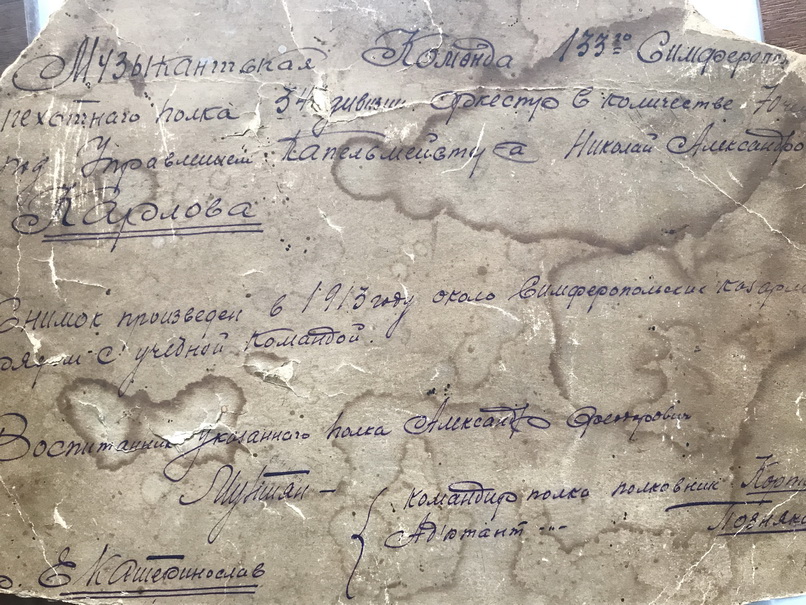 Музыкантская Команда 133го Симфероп
пехотнаго полка 34 дивизии. Оркестр в количестве 70
под Управлением Капельмейстера Николай Александро
Карлова
Снимок произведен в 1913 году около Симферопольские казарм
рядом с учебной Командой.
Воспитанник указанного полка Александр Федорович
командир полка полковник
Адютант
г. Екатеринослав